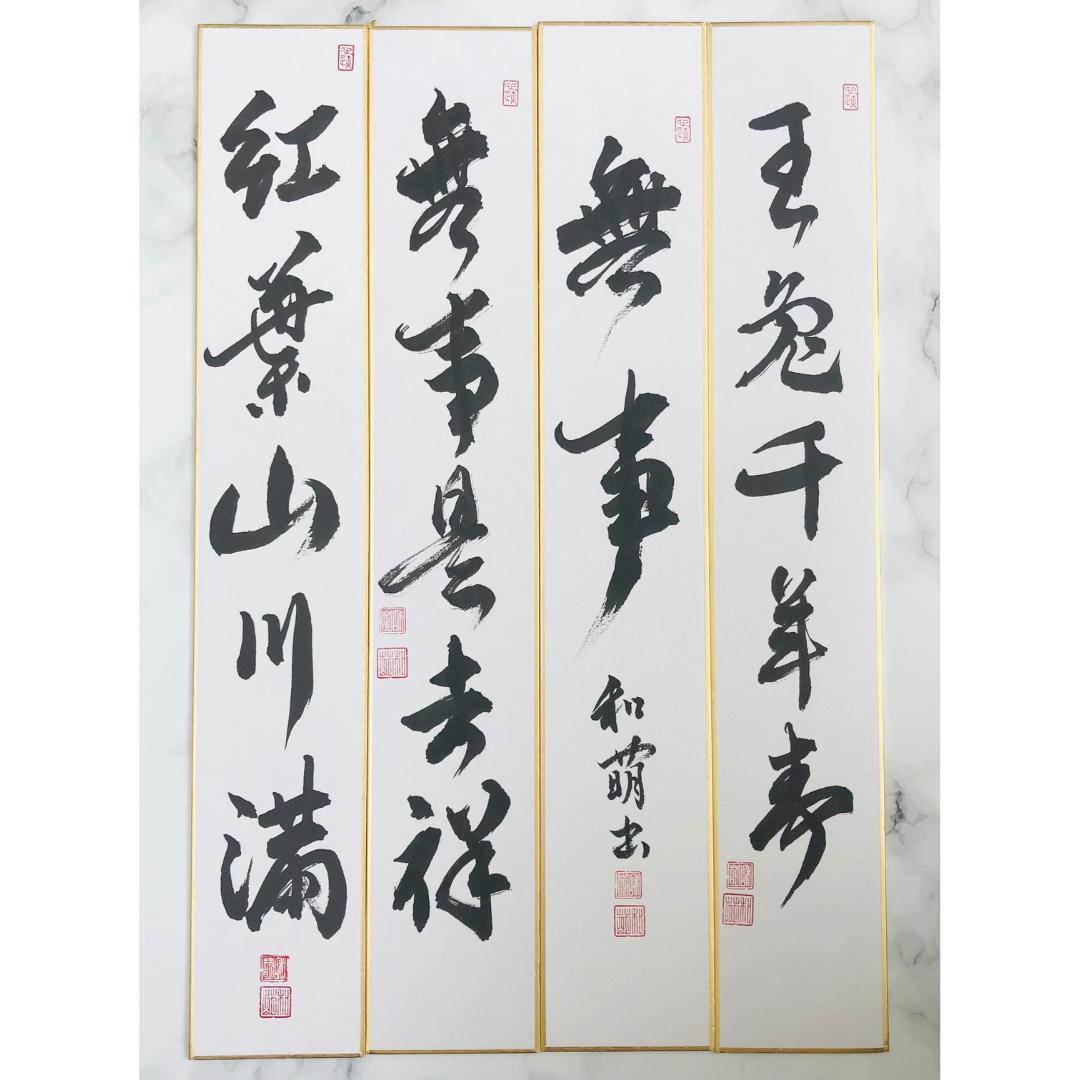 玉兎千年寿
無事
和萌書
無事是吉祥
紅葉山川満